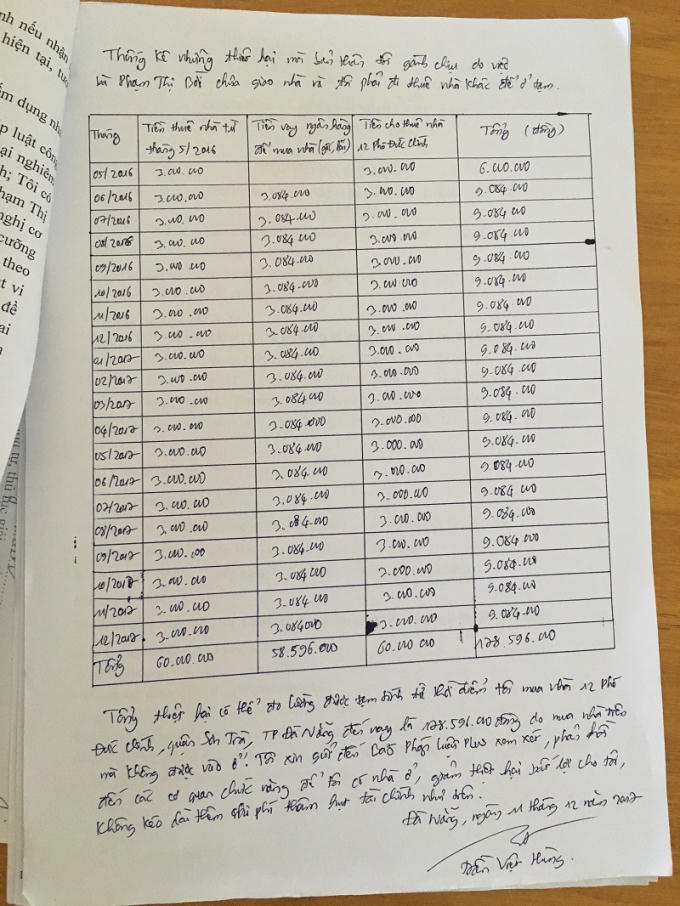 nh nếu nhận
hiện tại,
ếm dụng nhà
p luật
ại nghiêm
h; Tôi có
hạm Thị
nghị cơ
cưỡng
theo
t vi
đề
ai
Thống kê những thiệt hại mà bản thân tôi gánh chịu do việc
bà Phạm Thị chưa giao nhà và tôi phải đi thuê nhà khác để ở tạm.
Tháng | Tiền thuê nhà từ tháng 5/2016 | Tiền vay ngân hàng để mua nhà (gốc, lãi) | Tiền cho thuê nhà 12 Phó Đức Chính | Tổng (đồng)
05/2016 3.000.000 3.000.000 6.000.000
06/2016 3.000.000 3.084.000 3.000.000 9.084.000
07/2016 3.000.000 3.084.000 3.000.000 9.084.000
08/2016 3.000.000 3.084.000 3.000.000 9.084.000
09/2016 3.000.000 3.084.000 3.000.000 9.084.000
10/2016 3.000.000 3.084.000 3.000.000 9.084.000
11/2016 3.000.000 3.084.000 3.000.000 9.084.000
12/2016 3.000.000 3.084.000 3.000.000 9.084.000
01/2017 3.000.000 3.084.000 3.000.000 9.084.000
02/2017 3.000.000 3.084.000 3.000.000 9.084.000
03/2017 3.000.000 3.084.000 3.000.000 9.084.000
04/2017 3.000.000 3.084.000 3.000.000 9.084.000
05/2017 3.000.000 3.084.000 3.000.000 9.084.000
06/2017 3.000.000 3.084.000 3.000.000 9.084.000
07/2017 3.000.000 3.084.000 3.000.000 9.084.000
08/2017 3.000.000 3.084.000 3.000.000 9.084.000
09/2017 3.000.000 3.084.000 3.000.000 9.084.000
10/2017 3.000.000 3.084.000 3.000.000 9.084.000
11/2017 3.000.000 3.084.000 3.000.000 9.084.000
12/2017 3.000.000 3.084000 3.000.000 9.084.000
Tổng 60.000.000 58.596.000 60.000.000 178.596.000
Tổng thiệt hại có thể đo lường được tạm tính từ thời điểm tôi mua nhà 12 Phó
Đức Chính, quận Sơn Trà, TP Đà Nẵng đến nay là 178.596.000 đồng do mua nhà trên
mà không được vào ở. Tôi xin gửi đến Báo Pháp Luật Plus xem xét, phản hồi
đến các cơ quan chức năng để tôi có nhà ở, giảm thiệt hại lợi cho tôi,
không kéo dài thêm chi phí thâm hụt tài chính như trên.
Đà Nẵng, ngày 11 tháng 12 năm 2017
Việt Hùng.